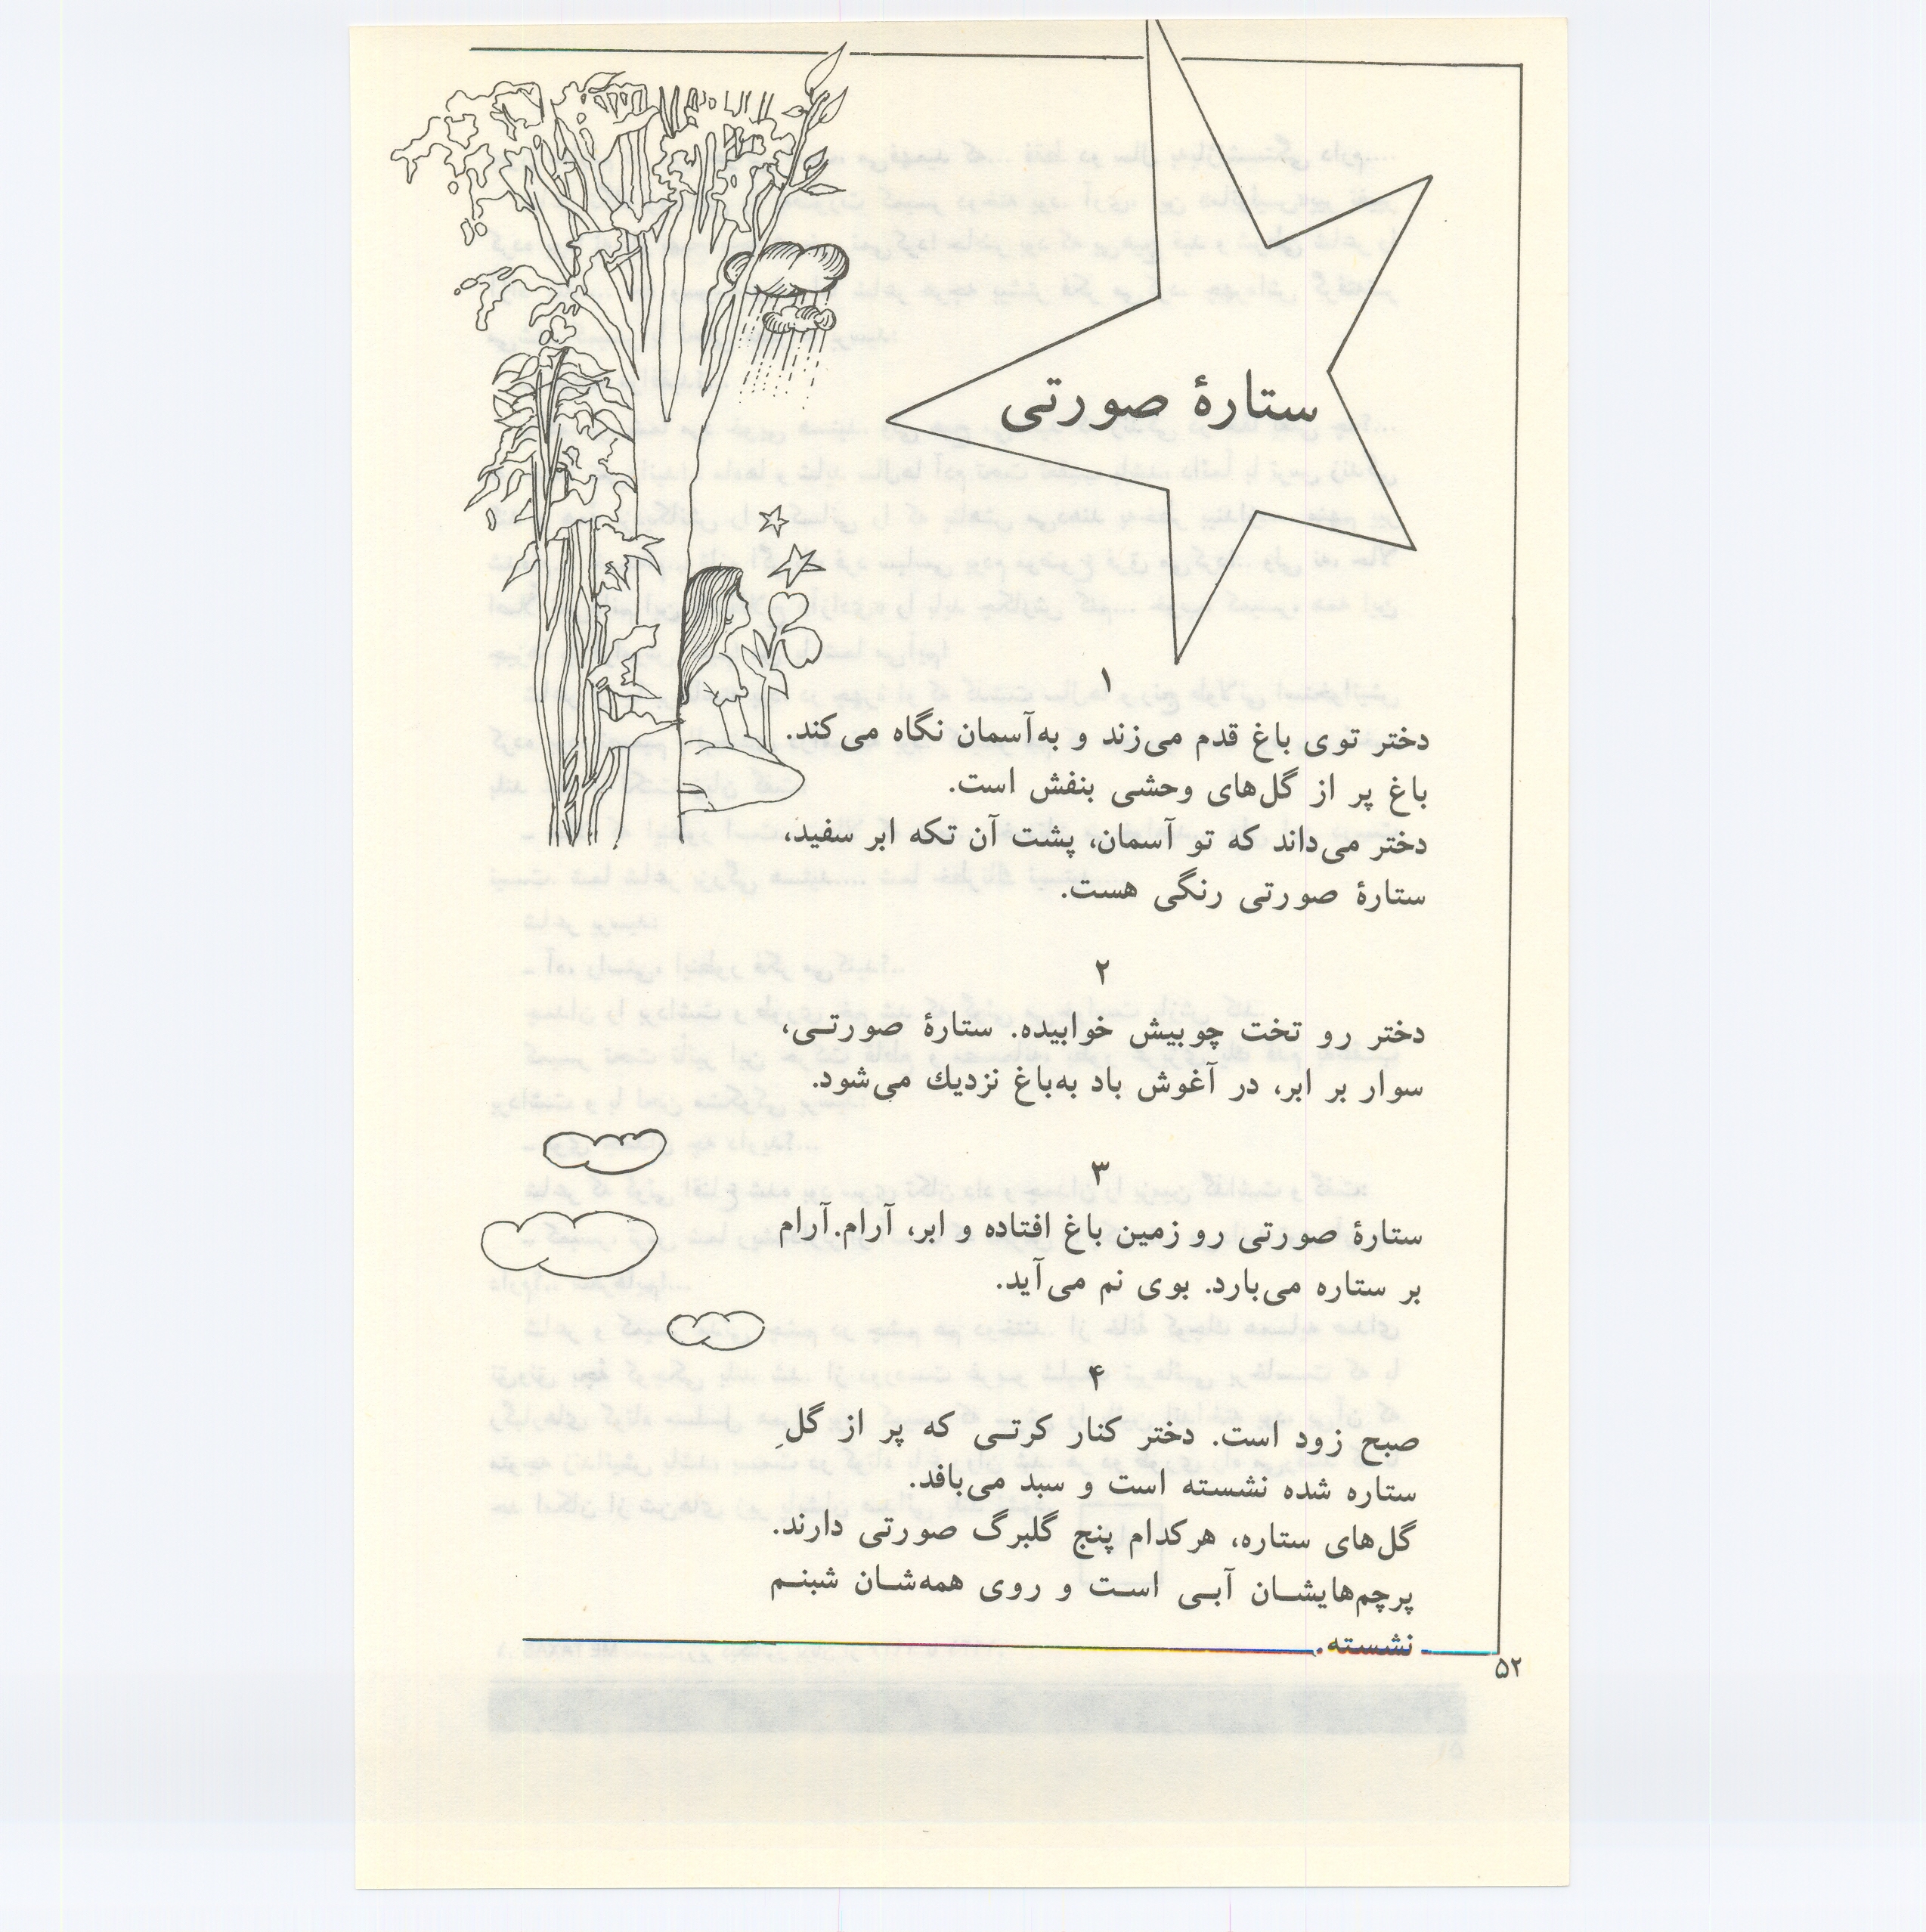 ستارهٔ صورتی
۱
دختر توی باغ قدم می‌زند و به‌آسمان نگاه می‌کند.
باغ پر از گل‌های وحشی بنفش است.
دختر می‌داند که تو آسمان، پشت آن تکه ابر سفید،
ستارهٔ صورتی رنگی هست.
۲
دختر رو تخت چوبیش خوابیده. ستارهٔ صورتی،
سوار بر ابر، در آغوش باد به‌باغ نزدیك می‌شود.
۳
ستارهٔ صورتی رو زمین باغ افتاده و ابر، آرام.آرام
بر ستاره می‌بارد. بوی نم می‌آید.
۴
صبح زود است. دختر کنار کرتی که پر از گلِ
ستاره شده نشسته است و سبد می‌بافد.
گل‌های ستاره، هرکدام پنج گلبرگ صورتی دارند.
پرچم‌هایشان آبی است و روی همه‌شان شبنم
نشسته.
۵۲